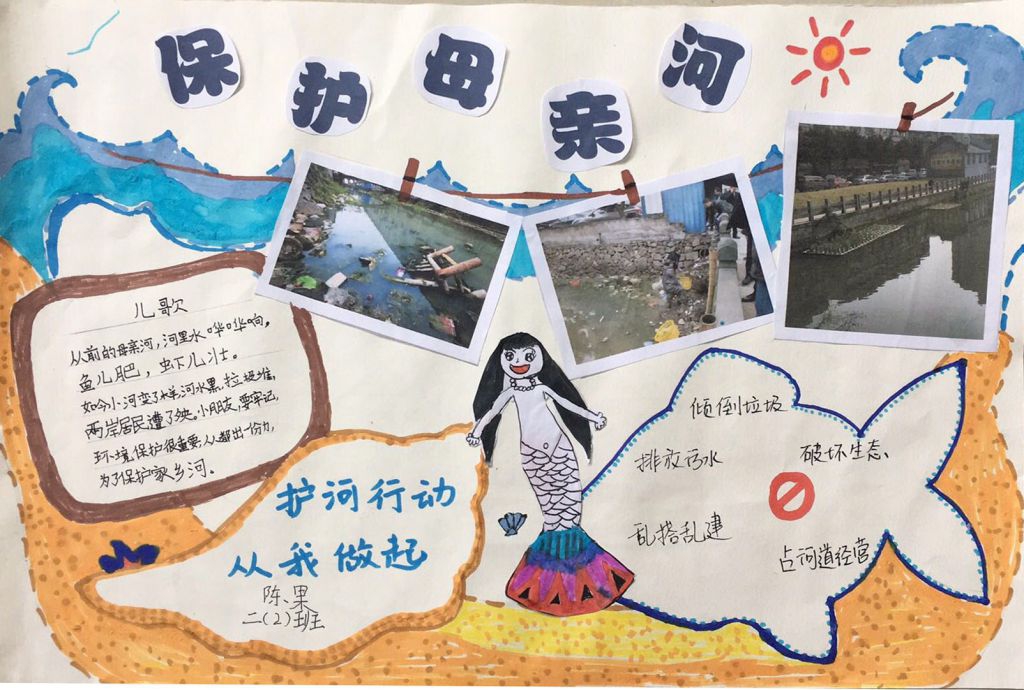 保护母亲河
儿歌
从前的母亲河,河里水哗哗响,
鱼儿肥,虾儿壮。
如今小河变了样,河水黑,垃圾堆,
两岸居民遭了殃。小朋友,要牢记,
环境保护很重要,人人都出一份力,
为了保护家乡河。
护河行动
从我做起
陈果
二(2)班
倾倒垃圾
排放污水
破坏生态、
乱搭乱建
占河道经营